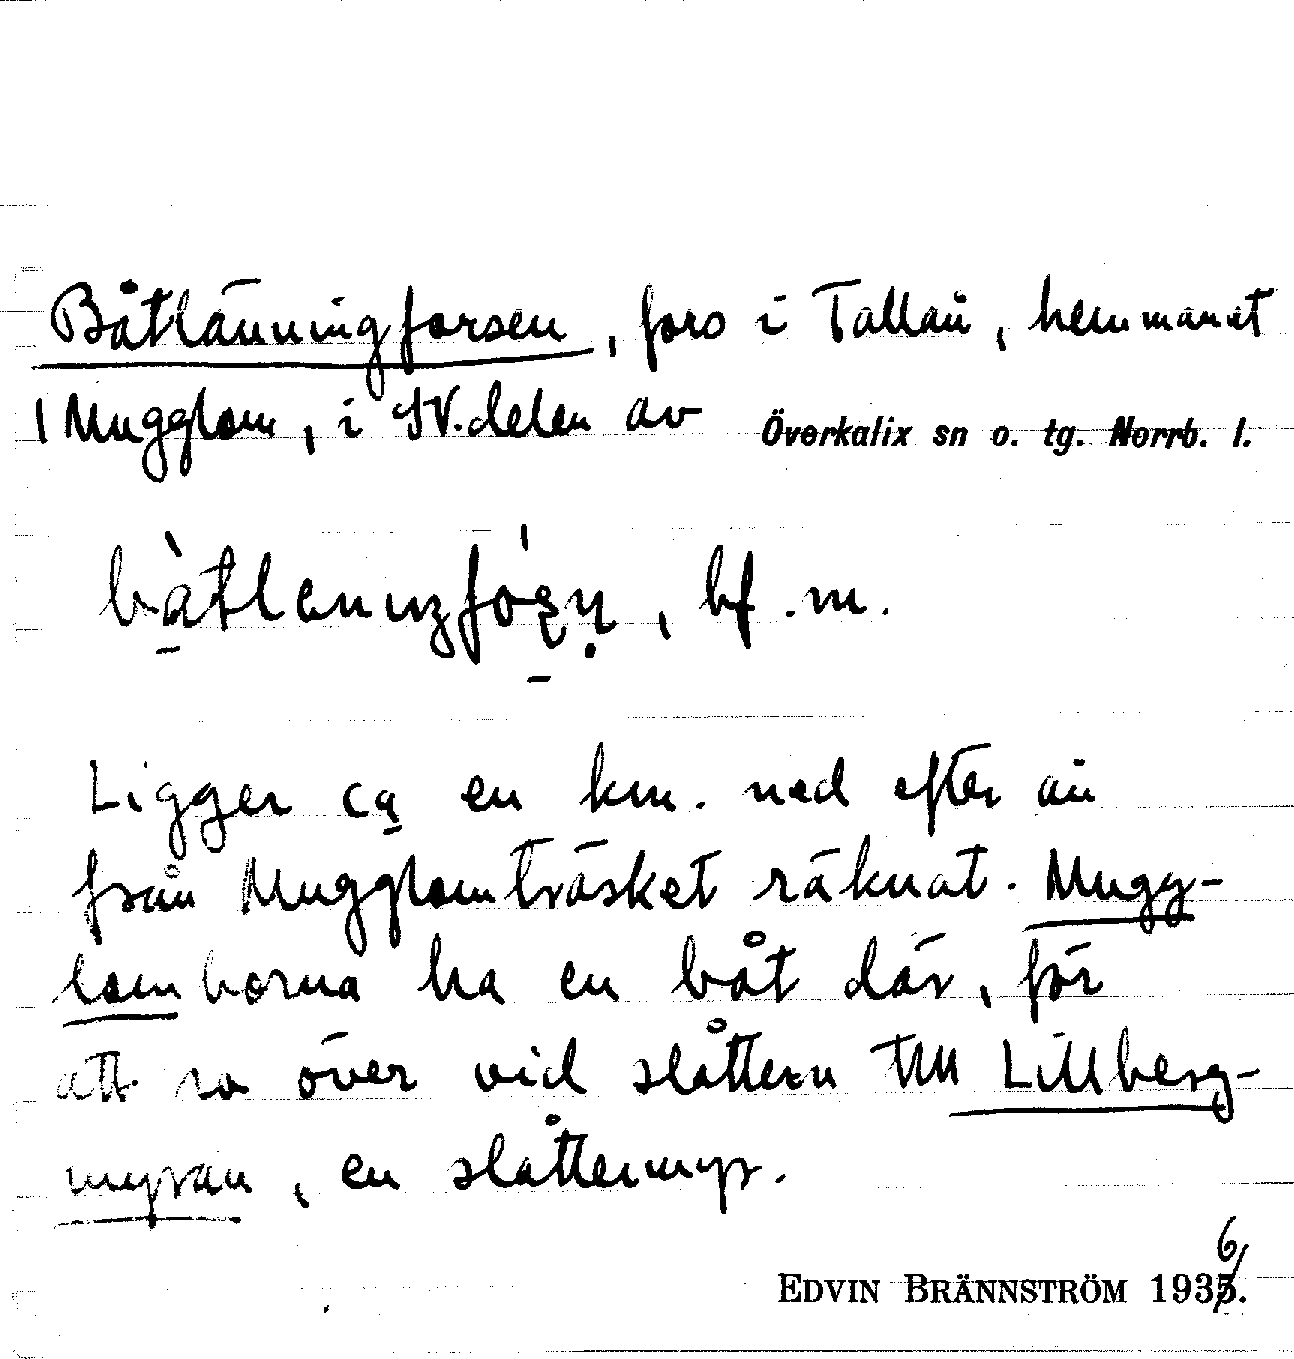 Båtlänningforsen, fors i Tallån, hemmanet
1 Mugglom, i SV. delen av Överkalix sn o. tg. Norrb. l.
bf. m.
Ligger ca en km. ned efter ån
från Mugglomträsket räknat. Mugg-
lomborna ha en båt där, för
att ro över vid slåttern till Lillberg-
myran, en slåttermyr.
6
EDVIN BRÄNNSTRÖM 1935.